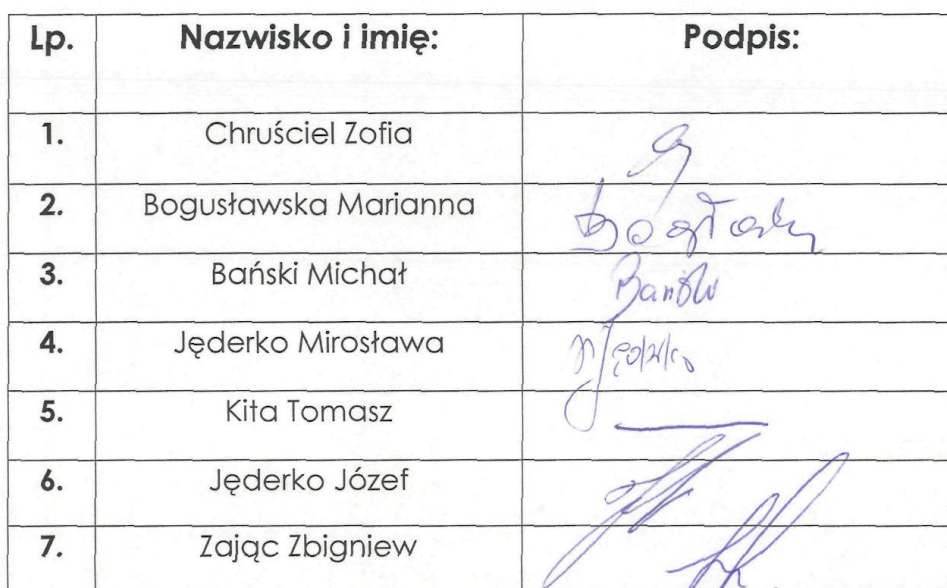 Lp. Nazwisko i imię: Podpis:
1. Chruściel Zofia
2. Bogusławska Marianna
3. Bański Michał
4. Jęderko Mirosława
5. Kita Tomasz
6. Jęderko Józef
7. Zając Zbigniew